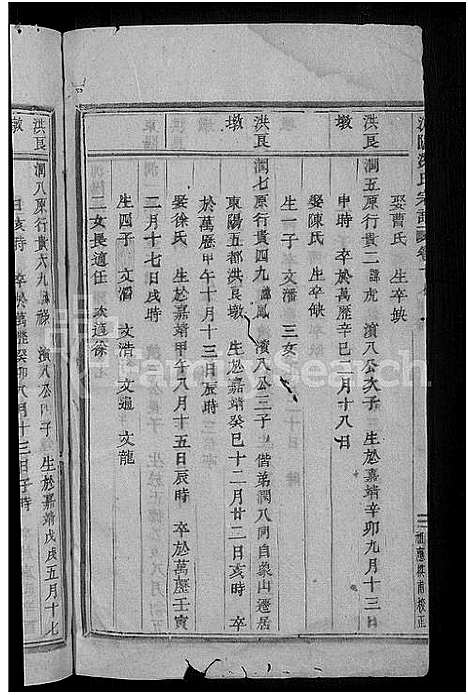 娶曹氏 生卒缺
洪良墩
潤五原行貴二諱虎 濱八公次子 生於嘉靖辛卯九月十三日
申時 卒於萬歷辛巳二月十八日
娶陳氏 生卒缺
生一子 文濱 三女
洪良墩
潤七原行貴四九諱鳳 濱八公三子 偕弟潤八同自象山遷居
東陽五都洪良墩 生於嘉靖癸巳十二月廿二日亥時 卒
於萬歷甲午十月十三日辰時
娶徐氏 生於嘉靖甲午八月十五日辰時 卒於萬歷壬寅
二月十七日戌時
生四子 文濳 文清 文遍 文龍
二女長適任 次適徐
洪良墩
潤八原行貴六九諱祿 濱八公四子 生於嘉靖戊戌五月十七
日亥時 卒於萬歷癸卯八月十三日子時
FamilySearch